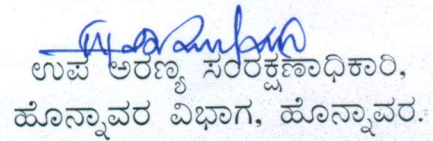 ಉಪ ಅರಣ್ಯ ಸಂರಕ್ಷಣಾಧಿಕಾರಿ,
ಹೊನ್ನಾವರ ವಿಭಾಗ, ಹೊನ್ನಾವರ.